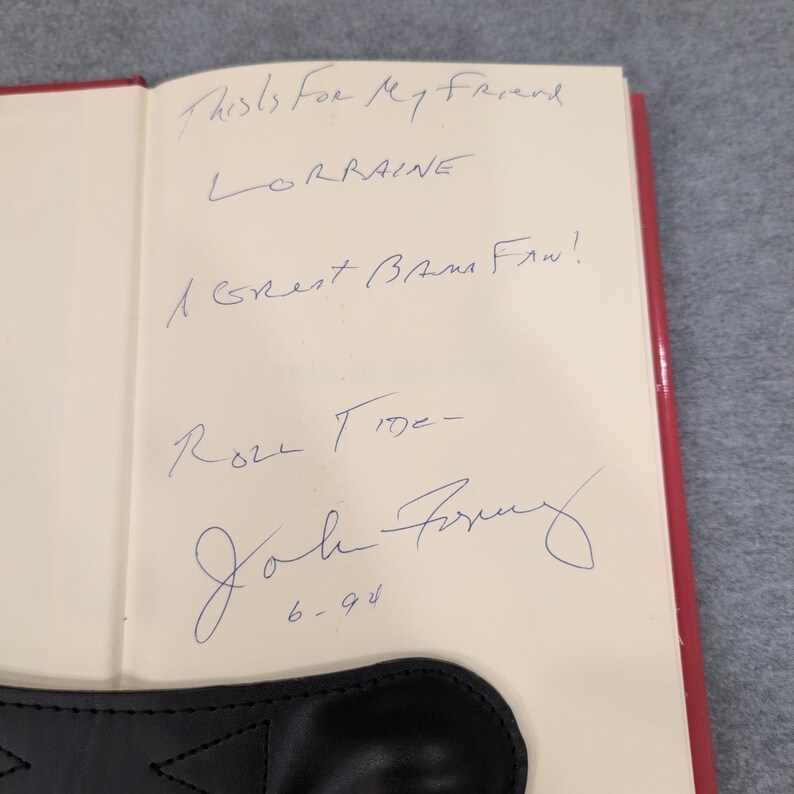 This Is For My Friend
LORRAINE
A Great Bama Fan!
Roll Tide-
John Forney
6-94